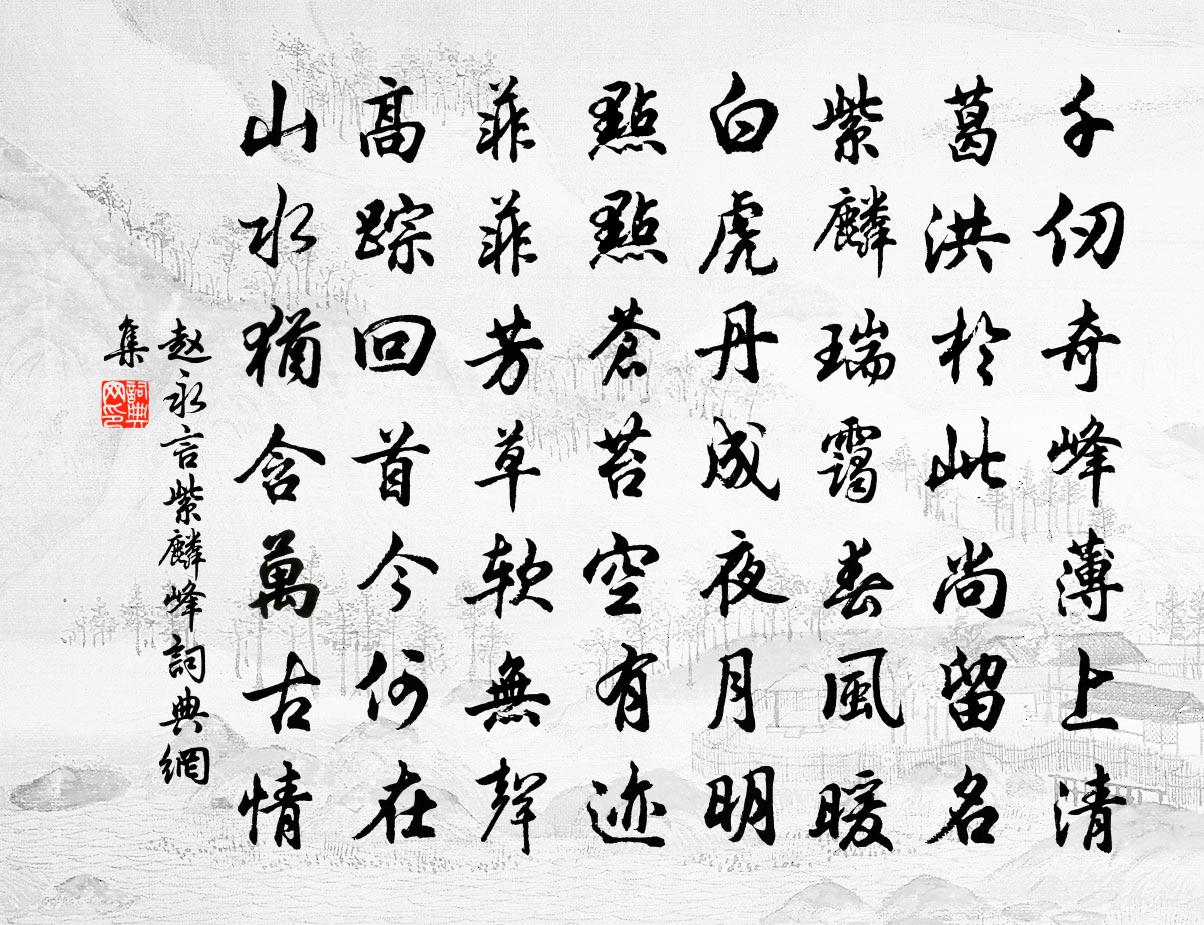 千仞奇峰薄上清
葛洪於此尚留名
紫麟瑞靄春風暖
白虎丹成夜月明
點點蒼苔空有迹
菲菲芳草軟無聲
高踪回首今何在
山水猶含萬古情
赵永言紫麟峰詞典網
集
詞典網印